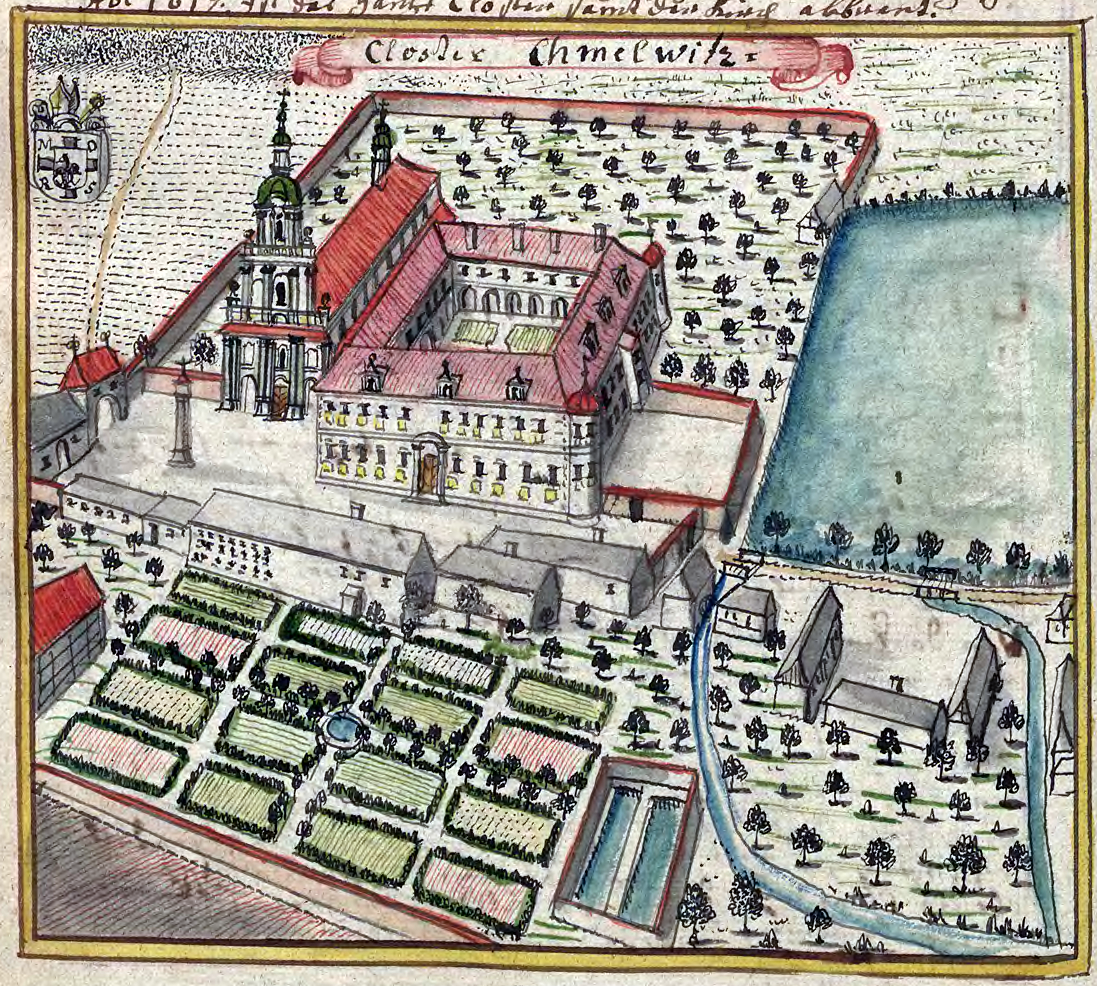 Ao: 1617. Ist das gantze Closter samt der Kirch abbrant.
Closter Chmelwitz =
M D
R S